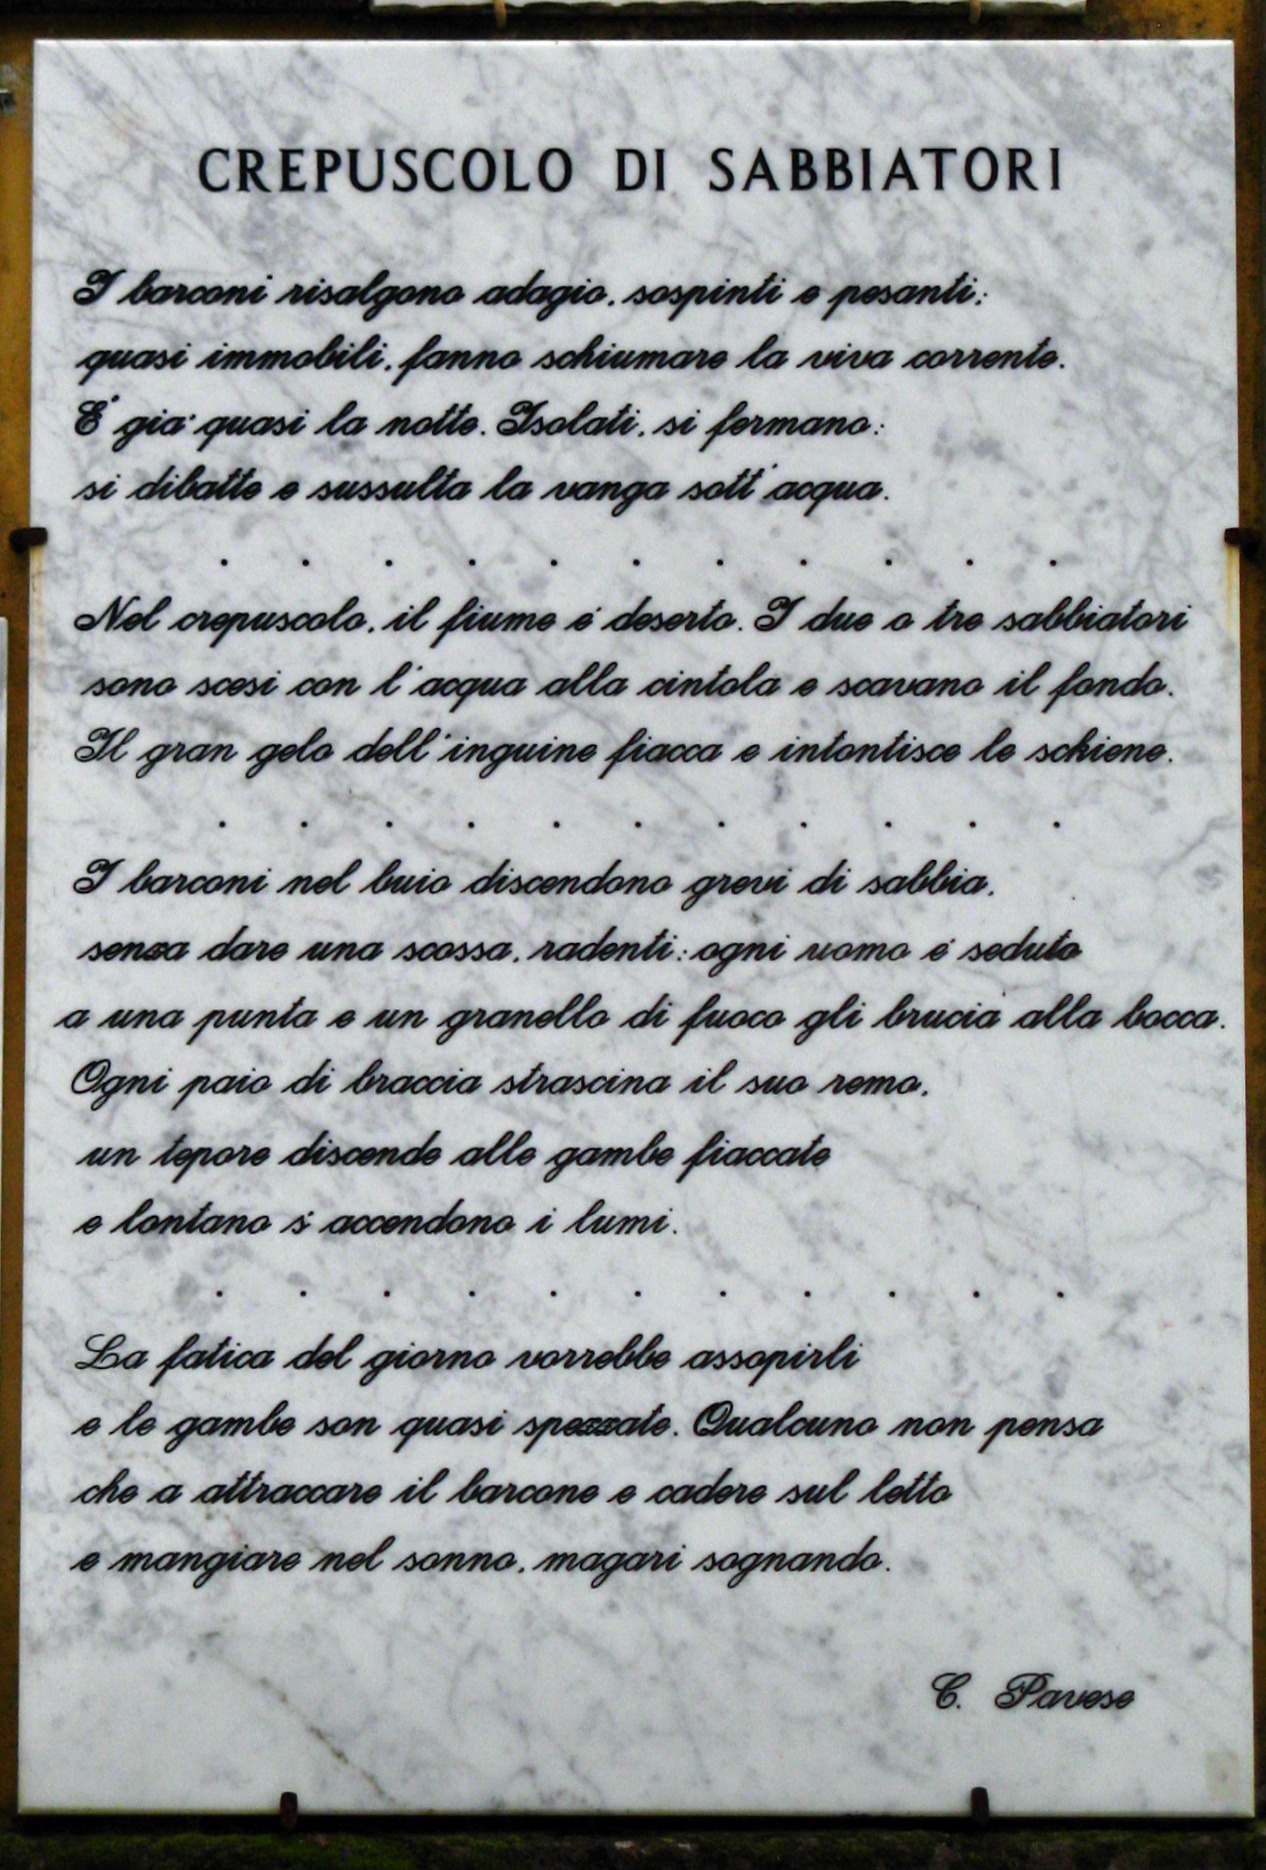 CREPUSCOLO DI SABBIATORI
I barconi risalgono adagio, sospinti e pesanti:
quasi immobili, fanno schiumare la viva corrente.
E' gia' quasi la notte. Isolati, si fermano:
si dibatte e sussulta la vanga sott'acqua.
. . . . . . . . . . .
Nel crepuscolo, il fiume é deserto. I due o tre sabbiatori
sono scesi con l'acqua alla cintola e scavano il fondo.
Il gran gelo dell'inguine fiacca e intontisce le schiene.
. . . . . . . . . . .
I barconi nel buio discendono grevi di sabbia,
senza dare una scossa, radenti: ogni uomo é seduto
a una punta e un granello di fuoco gli brucia alla bocca.
Ogni paio di braccia strascina il suo remo,
un tepore discende alle gambe fiaccate
e lontano s'accendono i lumi.
. . . . . . . . . . .
La fatica del giorno vorrebbe assopirli
e le gambe son quasi spezzate. Qualcuno non pensa
che a attraccare il barcone e cadere sul letto
e mangiare nel sonno, magari sognando.
C. Pavese